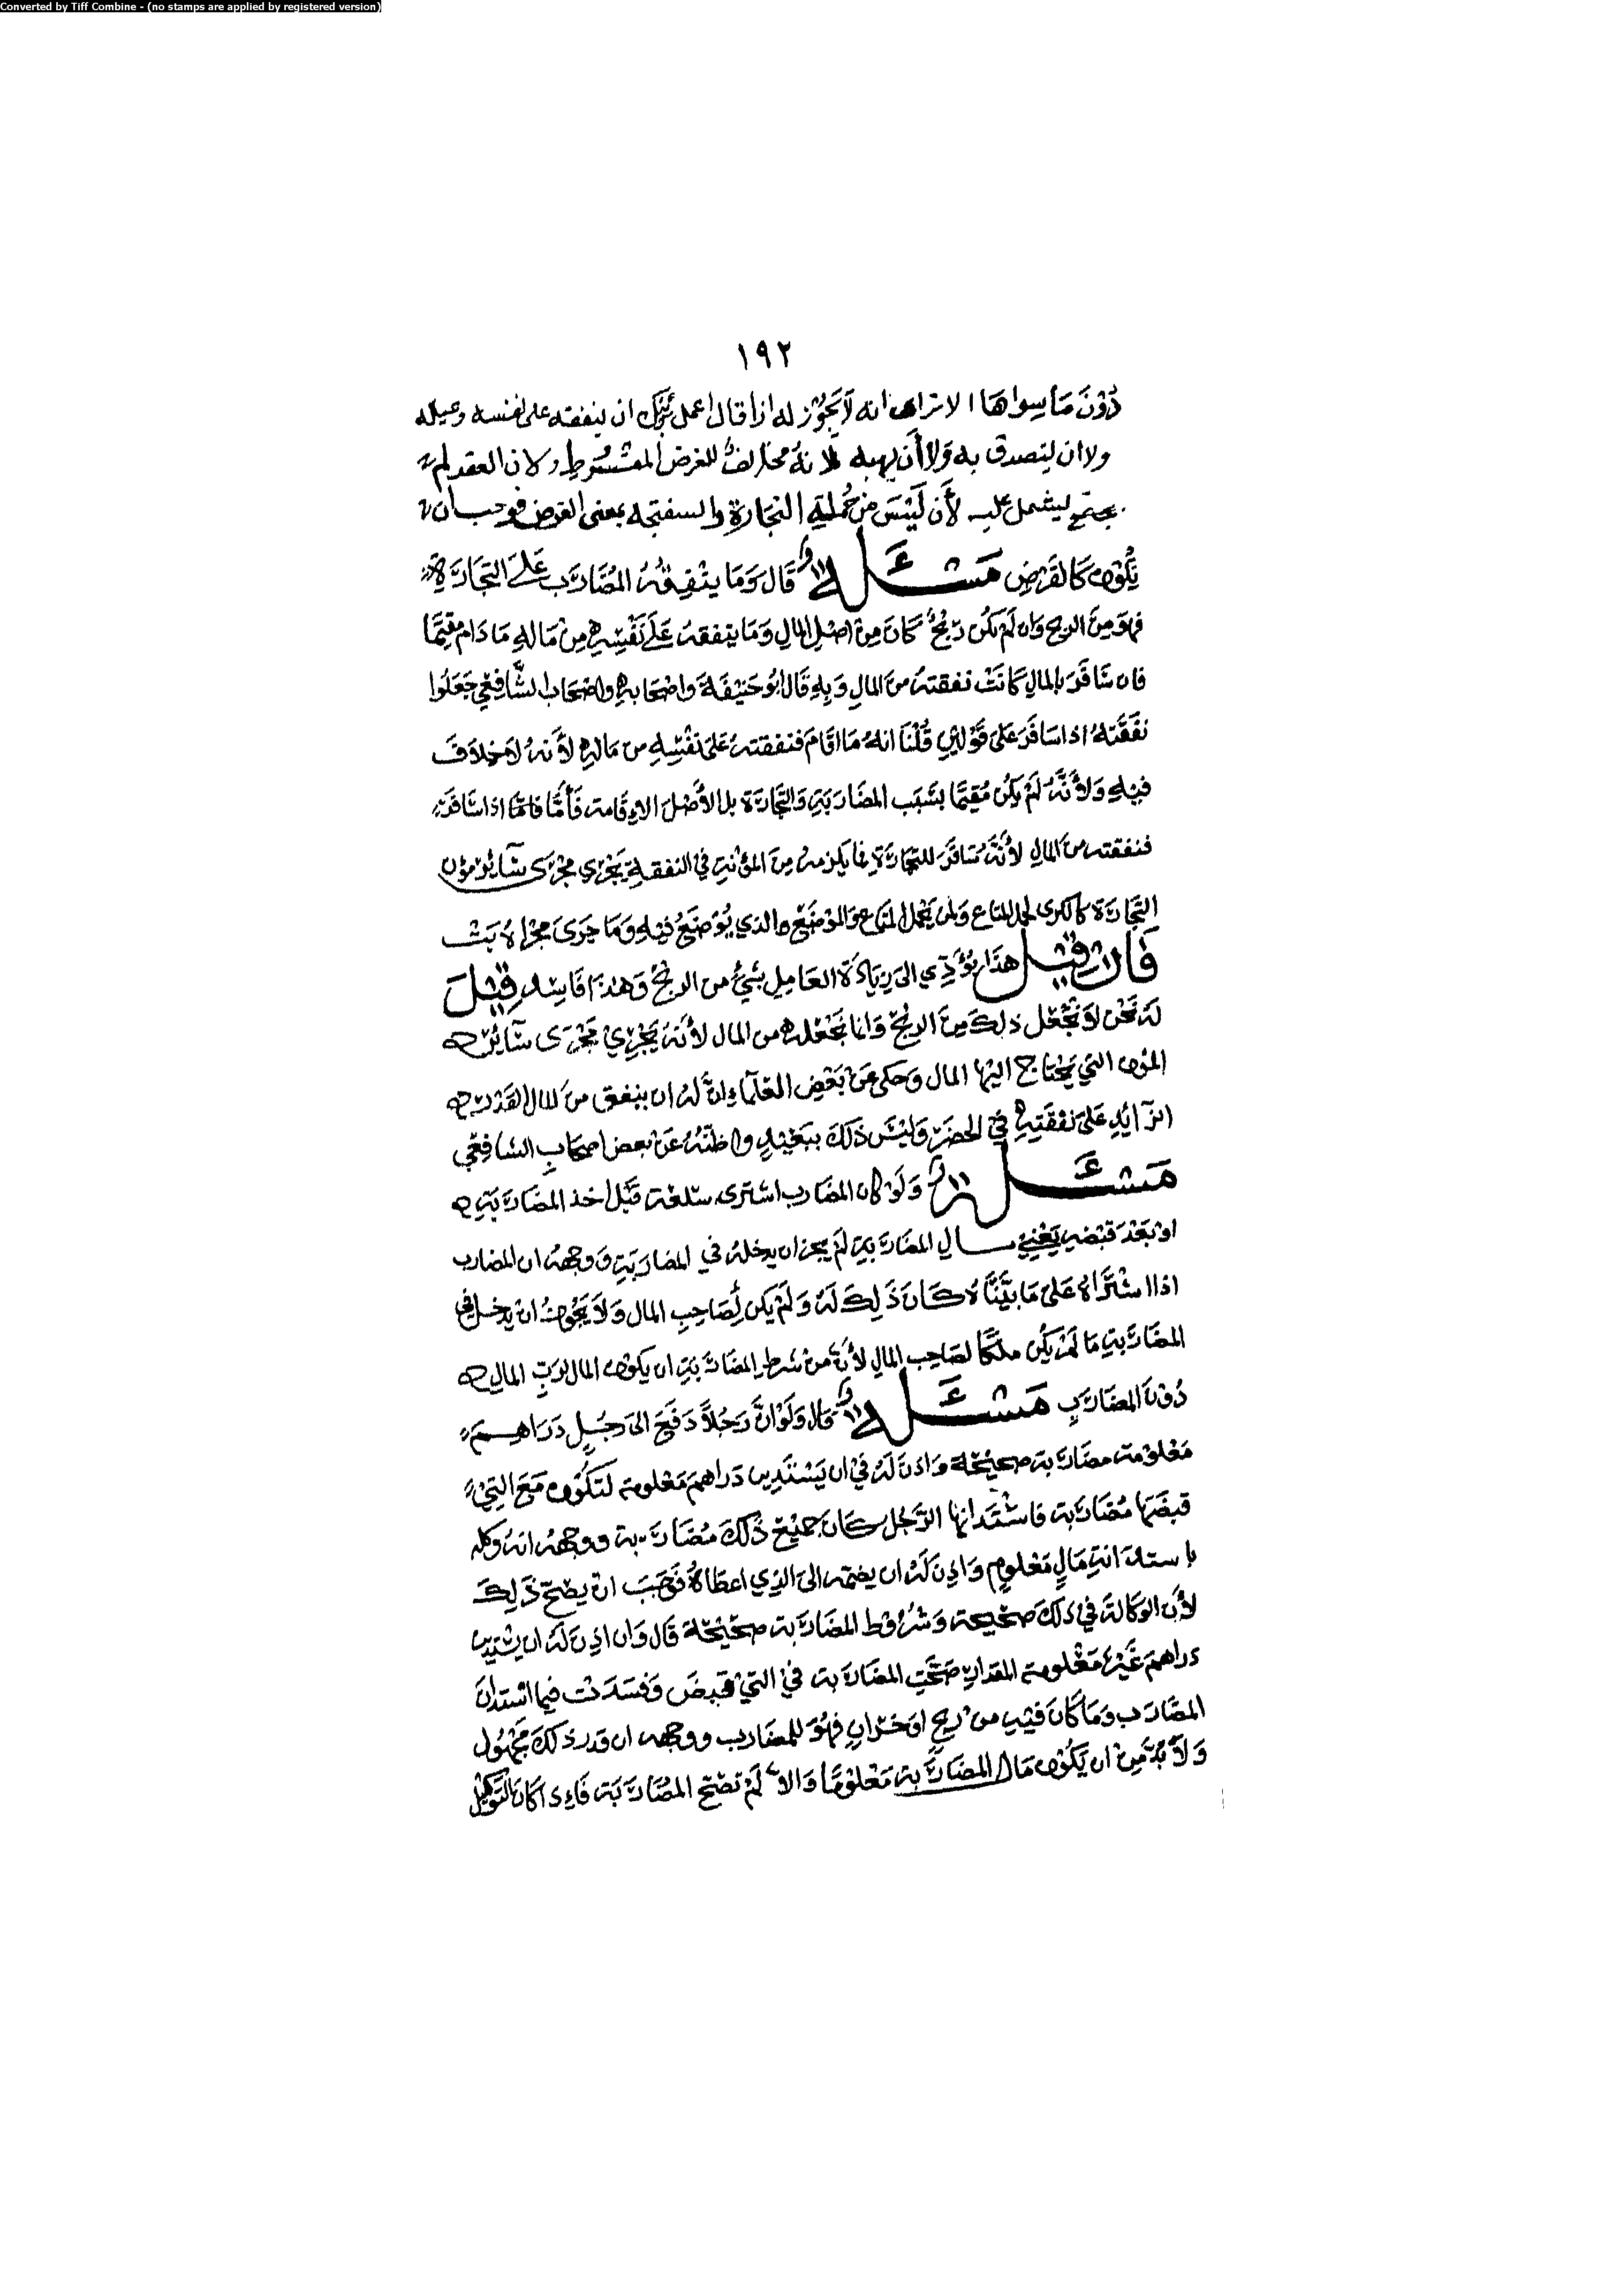 Converted by Tiff Combine - (no stamps are applied by registered version)
١٩٢
دُوْنَ مَا سِواهَا الا ترى انه لَا يَجُوْز له اذا قال اعمل برأيك ان ينفقه على نفسه وعياله
ولا ان ليتصدق به وَلا أَن يهبه لانهُ مخالفٌ للغرض المقـ ولان العقد لم
يشتمل عليه لأَن لَيْسَ مِنْ جُملَةِ التِجَارَةِ والسفتجه بمعنى القرض فوجب ان
يَّكُوْن كَالقَرْضِ مَسْئَلَة قَالَ وَمَا يُنْفِقُهُ المُضَارَب عَلَى التِّجَارَةِ
فهوَ مِنَ الربح وَان لَم يَكُن رِبْحٌ كَانَ مِنْ اصْلِ المالِ وَمَا ينفقهُ عَلَى نَفْسِهِ مِنْ مَالهِ مَا دَام مقِيمًا
فان سَافَرَ بالمالِ كَانَتْ نفقتهُ منَ المالِ وَبِهِ قَالَ ابُو حَنيْفَةَ وَاصْحَابهِ واصْحَاب الشَّافِعْي جَعَلُوا
نَفَقَتهُ اذا سَافَرَ عَلى قَوْلَيْنِ قُلْنَا انهُ مَا اقَامَ فنفقتهُ عَلى نفْسِهِ من مَالهِ لأَنهُ لا خِلاَفَ
فيهِ وَلأَنَّهُ لَمْ يكُن مُقِيمًا بسَبَب المضَارَبَةِ وَالتِّجَارَة بل الأَصْل الاِقَامَة فَأَمَّا اذا سَافَرَ
فنفقته منَ المالِ لأَنَّهُ سَافَرَ للتجَارَةِ فما يَلزمهُ مِنَ المؤنةِ في النفقةِ يَجْري مجْرَى سَآئر مؤن
التِّجَارَة كالكرى لحمل المتاع وَلمن يَحْمِل المتاع والموْضع الذي يُوْضَعُ فيهِ وَمَا جَرَى مجْرَاهُ
فَان قِيْل هذَا يؤَدِّي الى زِيَادَة العَامِل بشَيْءٍ من الربْحِ وَهذا فَاسِد قِيْلَ
لهَ نحْن لاَ نجْعَل ذلِكَ مِنَ الربْحِ وَانما نجْعَلهُ من المال لأَنهُ يَجْرِيْ مَجْرَى سَآئر
المؤن التي يَحْتاج اليهَا المال وَحكى عَنْ بَعْضِ العُلَمَاءِ انَّ لهُ ان ينفق منَ المال القدْر
الزآئِدِ عَلى نفقَتِهِ في الحضَر وَليْسَ ذَلكَ ببَعِيْدٍ واظنّهُ عَنْ بعض اصحَابِ الشَافِعْي
مَسْئَلَة وَلَو كان المضَارب اشترى سلعَة قَبْل اخذ المضَارَبَةِ
اوْ بَعْدَ قبْضهِ يَعْنِيْ مال المضَارَبَةِ لَم يجز ان يدخلهُ في المضارَبَةِ وَوجههُ ان المضارب
اذا اشْتَرَاهُ عَلى مَا بَيَّنَّاهُ كَانَ ذَلِكَ لَهُ وَلَمْ يَكن لِصَاحِبِ المال وَلاَ يَجُوزُ ان يدخل في
المضَارَبةِ مَا لَمْ يَكُن ملكًا لصَاحِب المالِ لأَنَّ مِنْ شرطِ المضَارَبَةِ ان يكوْن المال لرَبِّ المالِ
دُوْنَ المضَارَبِ مَسْئَلَة قال وَلَوْ انَّ رَجُلاً دَفعَ الى رَجُلٍ دَرَاهِمَ
مَعْلوْمَة مضَارَبة صحِيْحَة وَاذنَ لَهُ فيْ ان يَسْتَدِين دَراهمَ مَعْلومة لتكُوْن مَعَ التيْ
قبضَهَا مُضَارَبة فاسْتَدانهَا الرَّجُل كَانَ جميْع ذَلكَ مُضَارَبة ووجههُ انهُ وكله
باستدَانةِ مَالٍ مَعْلومٍ وَاذِنَ لَهُ ان يضمهُ الى الذِي اعطَاهُ فَوَجَبَ انْ يصحّ ذَلِكَ
لأَن الوَكالَة في ذلكَ صَحيحة وَشرُوْط المضَارَبة صحِيْحَة قَال وَان اذِنَ لَهُ ان يستَدِين
دراهمَ غَيْر مَعْلومة المقدارِ صَحَّتِ المضَارَبة في التيْ قبضَ وَفسَدَتْ فيما استدانَ
المضَارَب وَمَا كَانَ فيْهِ من ربْحٍ اوْ خسْرَانٍ فهُوَ للمضَاربِ ووجهه ان قدر ذلكَ مَجْهُول
وَلاَ بُدَّ مِنْ ان يَكُوْن مَال المضَارَبة مَعْلوْمًا وَالاَّ لَمْ تصَحّ المُضَارَبَة فَاِذا كَانَ التَّوكيْل